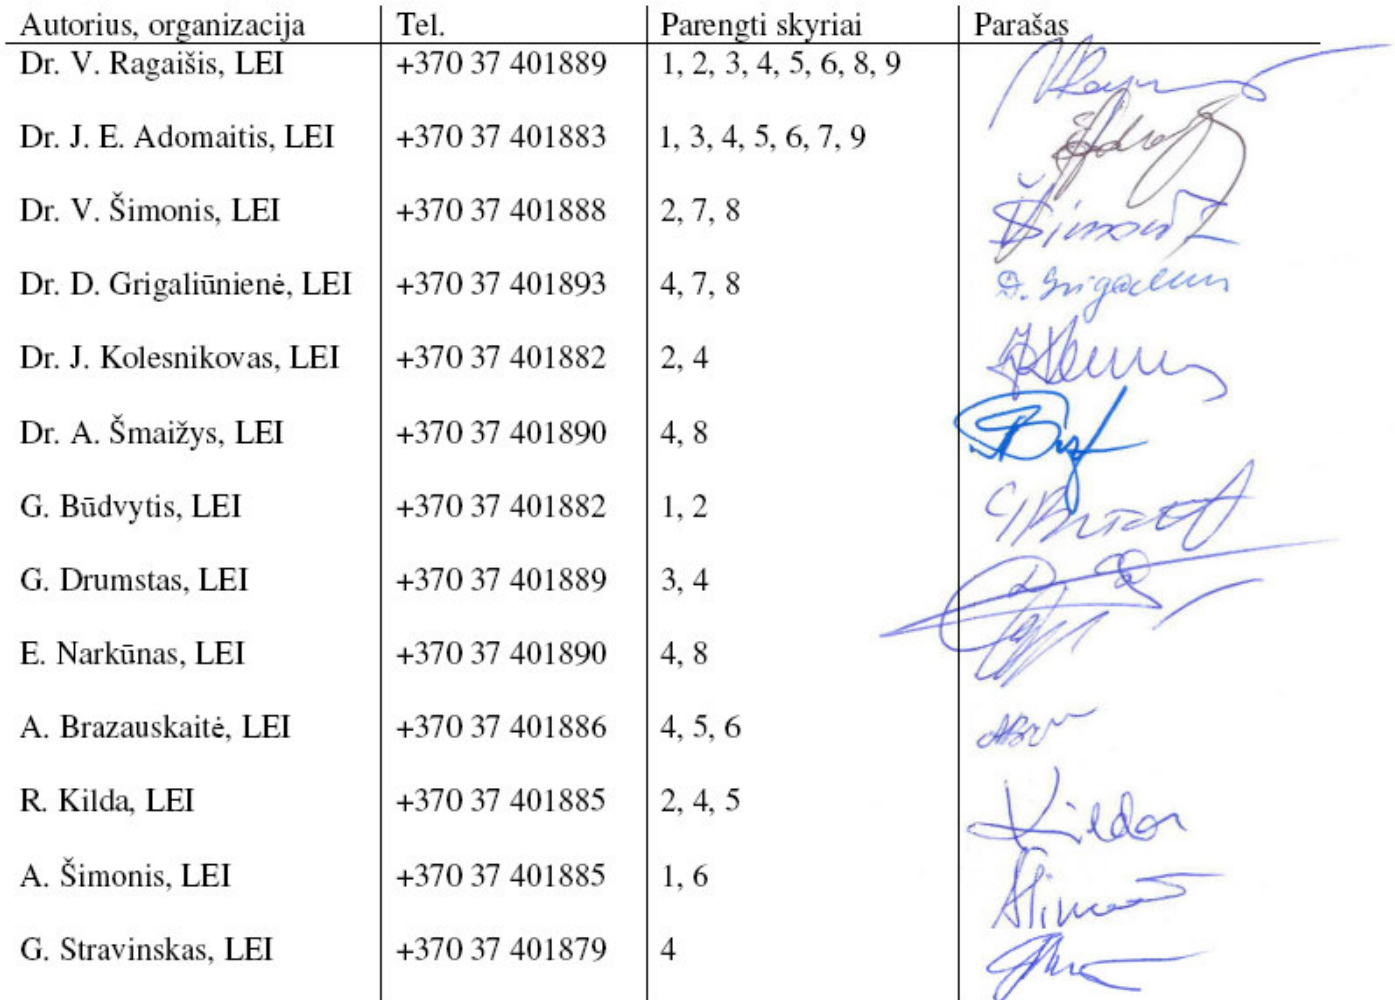 Autorius, organizacija Tel. Parengti skyriai Parašas
Dr. V. Ragaišis, LEI +370 37 401889 1, 2, 3, 4, 5, 6, 8, 9
Dr. J. E. Adomaitis, LEI +370 37 401883 1, 3, 4, 5, 6, 7, 9
Dr. V. Šimonis, LEI +370 37 401888 2, 7, 8
Dr. D. Grigaliūnienė, LEI +370 37 401893 4, 7, 8
Dr. J. Kolesnikovas, LEI +370 37 401882 2, 4
Dr. A. Šmaižys, LEI +370 37 401890 4, 8
G. Būdvytis, LEI +370 37 401882 1, 2
G. Drumstas, LEI +370 37 401889 3, 4
E. Narkūnas, LEI +370 37 401890 4, 8
A. Brazauskaitė, LEI +370 37 401886 4, 5, 6
R. Kilda, LEI +370 37 401885 2, 4, 5 Kilda
A. Šimonis, LEI +370 37 401885 1, 6
G. Stravinskas, LEI +370 37 401879 4